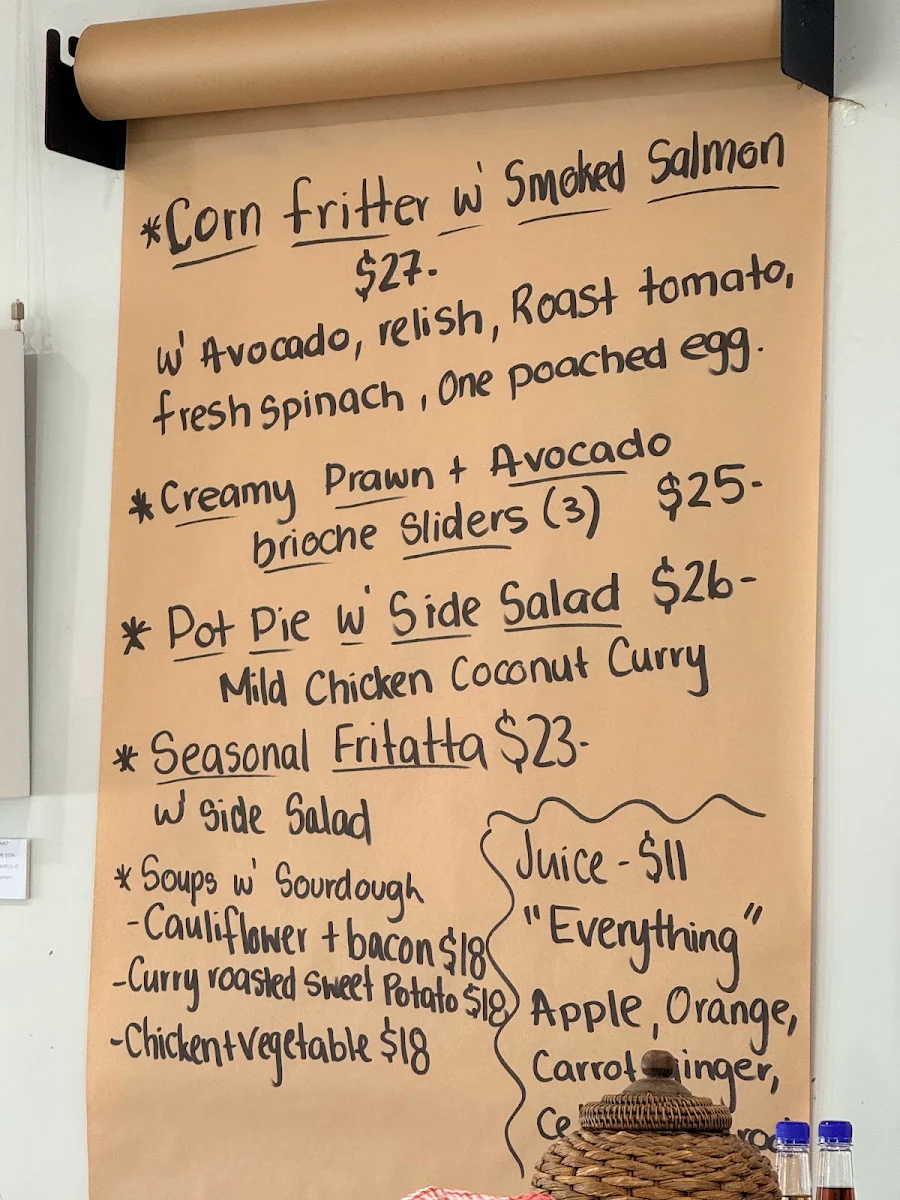 *Corn fritter w' Smoked Salmon
$27.
w' Avocado, relish, Roast tomato,
fresh spinach, One poached egg.
*Creamy Prawn + Avocado
brioche Sliders (3) $25-
* Pot Pie w' Side Salad $26-
Mild Chicken Coconut Curry
* Seasonal Fritatta $23-
w' Side Salad
* Soups w' Sourdough
-Cauliflower + bacon $18
-Curry roasted Sweet Potato $18
-Chicken+Vegetable $18
Juice - $11
"Everything"
Apple, Orange,
Carrot